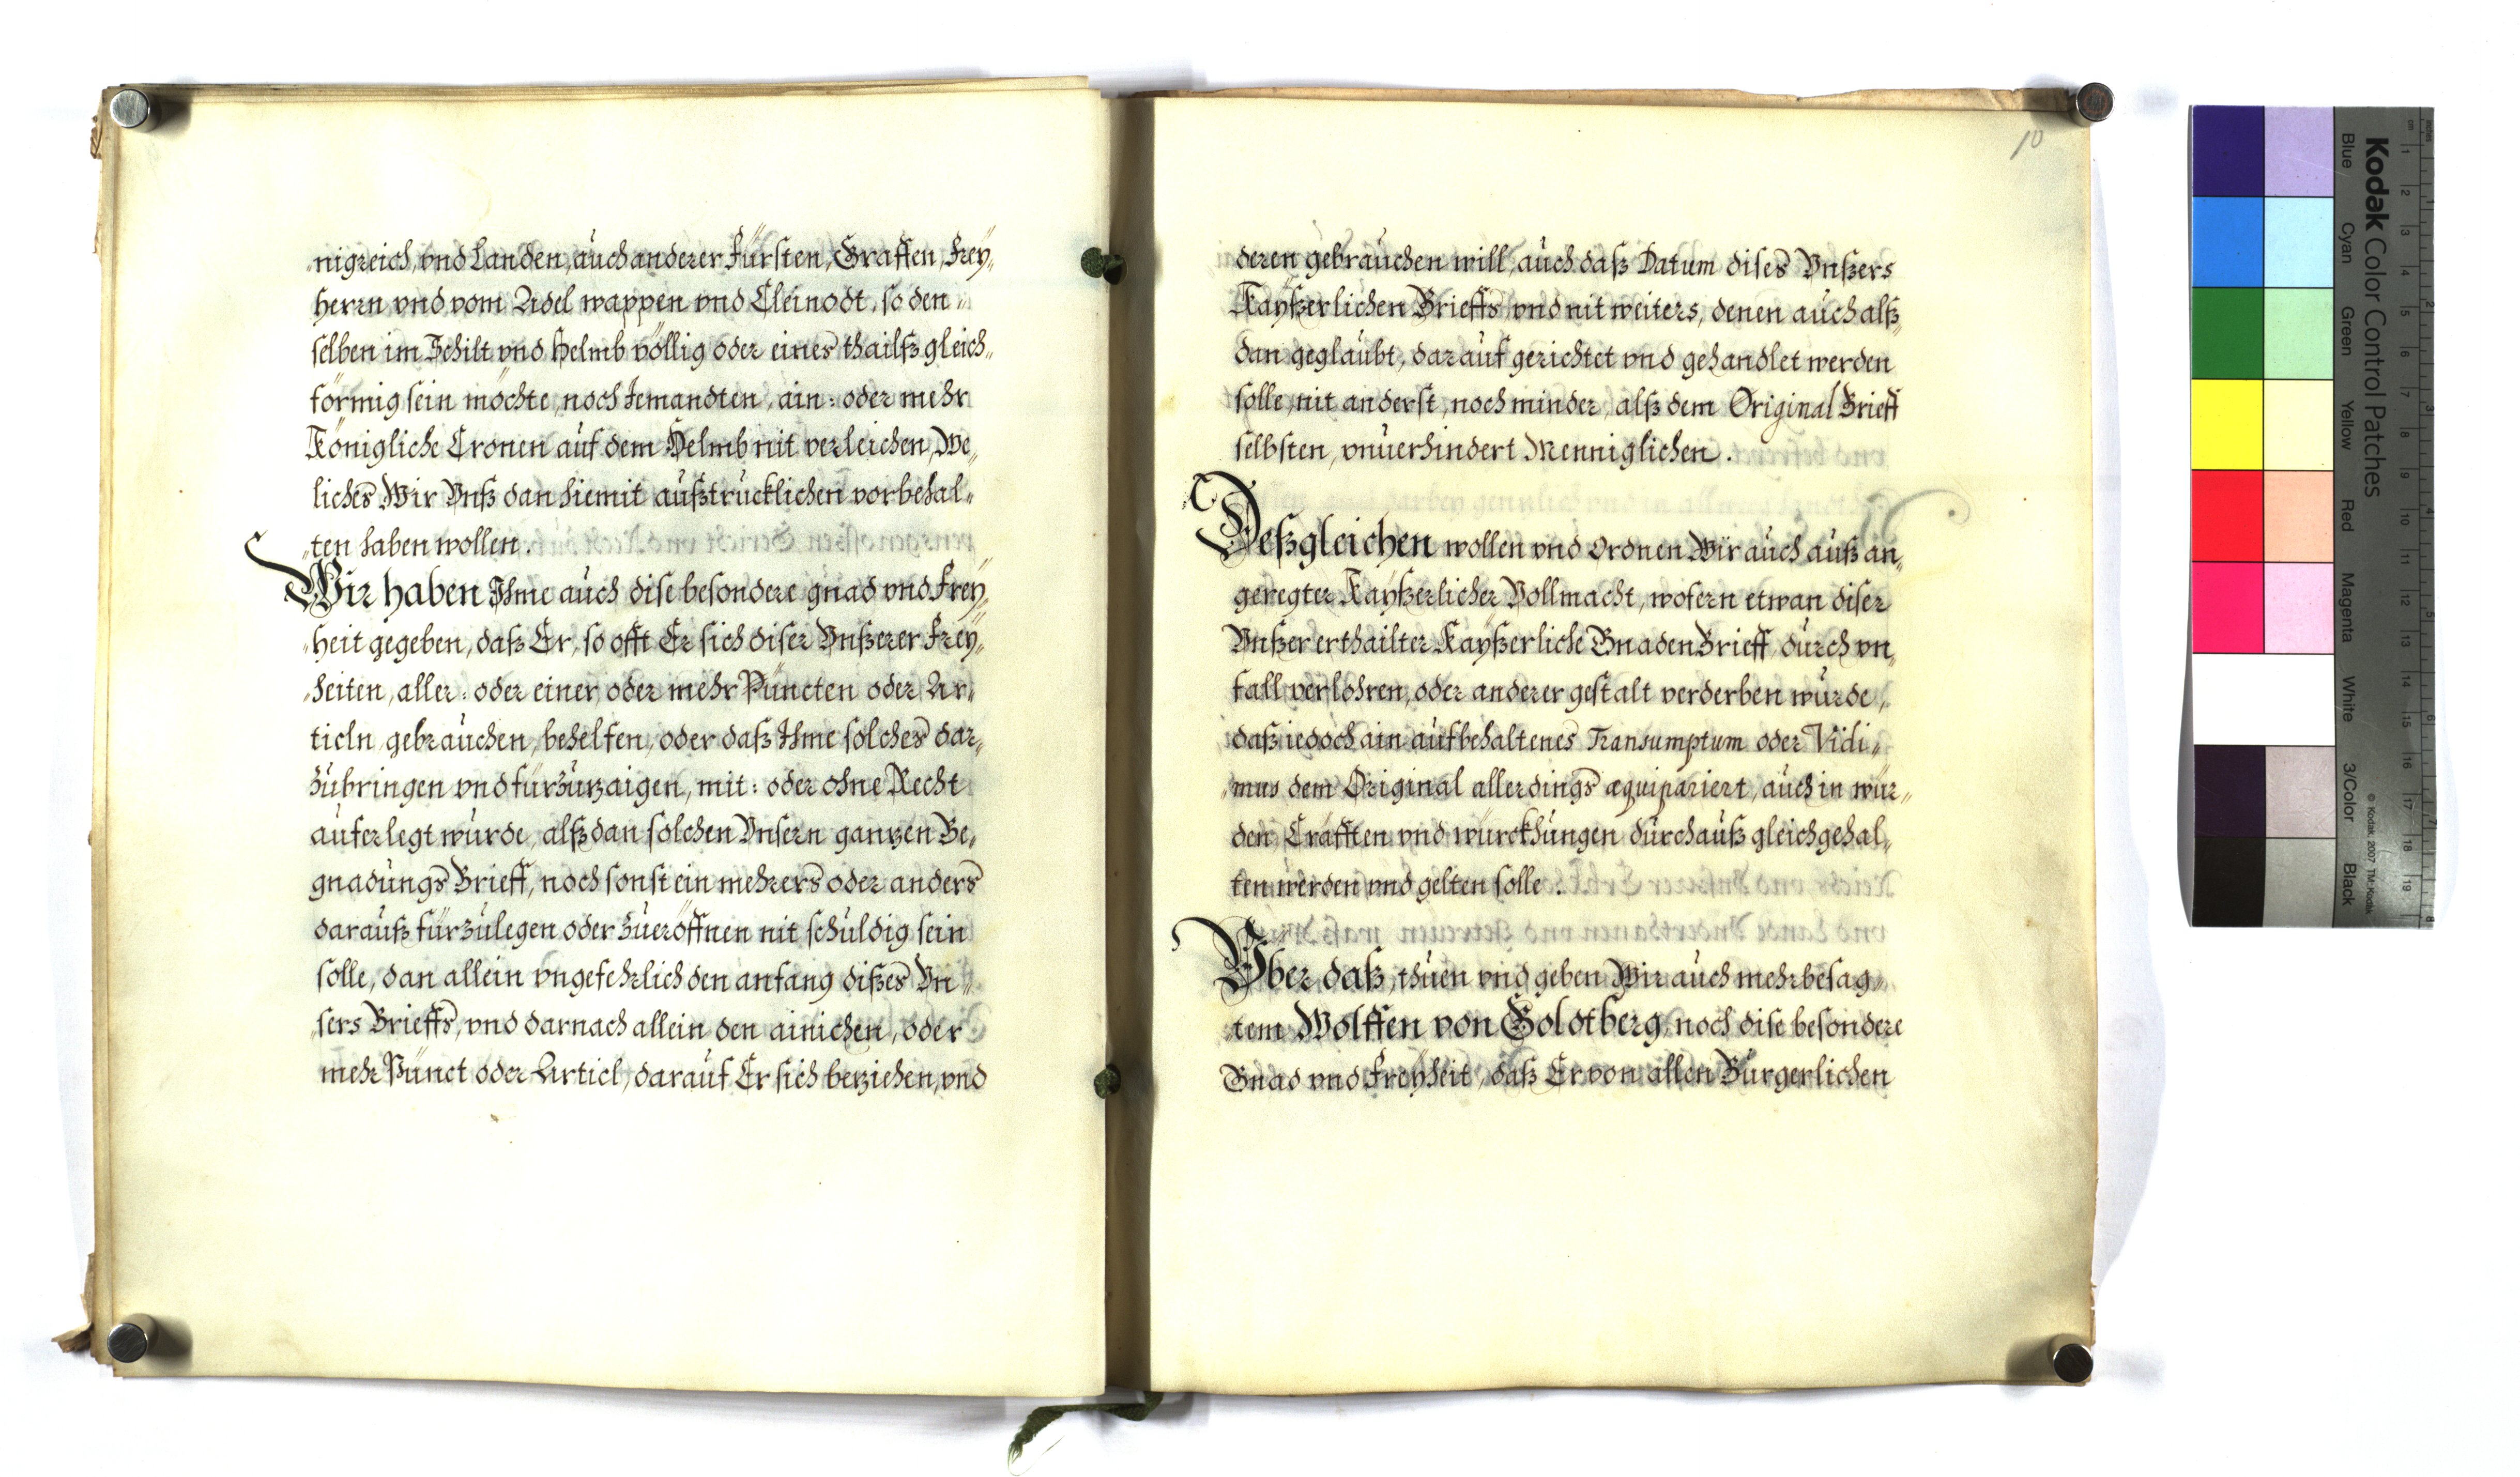 nigreich, vnd Landen, auch anderer Fürsten, Graffen, Freÿ„
herrn vnd vom Adel wappen vnd Cleinodt, so den„
selben im Schilt vnd Helmb völlig oder eines thailß gleich„
förmig sein möchte, noch Jemandten, ain: oder mehr
Königliche Cronen auf dem Helmb nit verleichen, We„
liches Wir Vnß dan hiemit außtrucklichen vorbehal„
„ten haben wollen.
Wir haben Ihme auch dise besondere gnad vnd Freÿ„
„heit gegeben, daß Er, so offt Er sich diser Vnßerer Freÿ„
„heiten, aller: oder einer oder mehr Puncten oder Ar„
ticln gebrauchen, behelfen, oder daß Ihme solches dar„
zubringen vnd fürzuzaigen, mit: oder ohne Recht
auferlegt wurde, alß dan solchen Vnsern ganzen Be„
gnadungs Brieff, noch sonst ein mehrers oder anders
darauß fürzulegen oder zueröffnen nit schuldig sein
solle, dan allein vngefehrlich den anfang dißes Vn„
„sers Brieffs, vnd darnach allein den ainichen, oder
mehr Punct oder Articl, darauf Er sich beziehen, vnd
10
deren gebrauchen will, auch daß Datum dises Vnßers
Kaÿßerlichen Brieffs, vnd nit weiters, denen auch alß„
dan geglaubt, darauf gerichtet vnd gehandlet werden
solle, nit anderst, noch minder, alß dem Original Brieff
selbsten, vnuerhindert Menniglichen.
Deßgleichen wollen vnd Ordnen Wir auch auß an„
geregter Kaÿßerlicher Vollmacht, wofern etwan diser
Vnßer erthailter Kaÿßerliche Gnaden Brieff, durch vn„
fall verlohren, oder anderer gestalt verderben wurde,
daß iedoch ain aufbehaltenes Transumptum oder Vidi„
„mus dem Original allerdings æquipariert, auch in wür„
den, Cräfften vnd würckhungen durchauß gleich gehal„
ten werden vnd gelten solle.
Vber daß, thuen vnd geben Wir auch mehrbesag„
„tem Wolffen von Goldtberg, noch dise besondere
Gnad vnd Freÿheit, daß Er von allen Burgerlichen
Kodak Color Control Patches
Blue
Cyan
Green
Yellow
Red
Magenta
White
3/Color
Black
© Kodak 2007 TM: Kodak
inches
cm
1
2
3
4
5
6
7
8
9
10
11
12
13
14
15
16
17
18
19